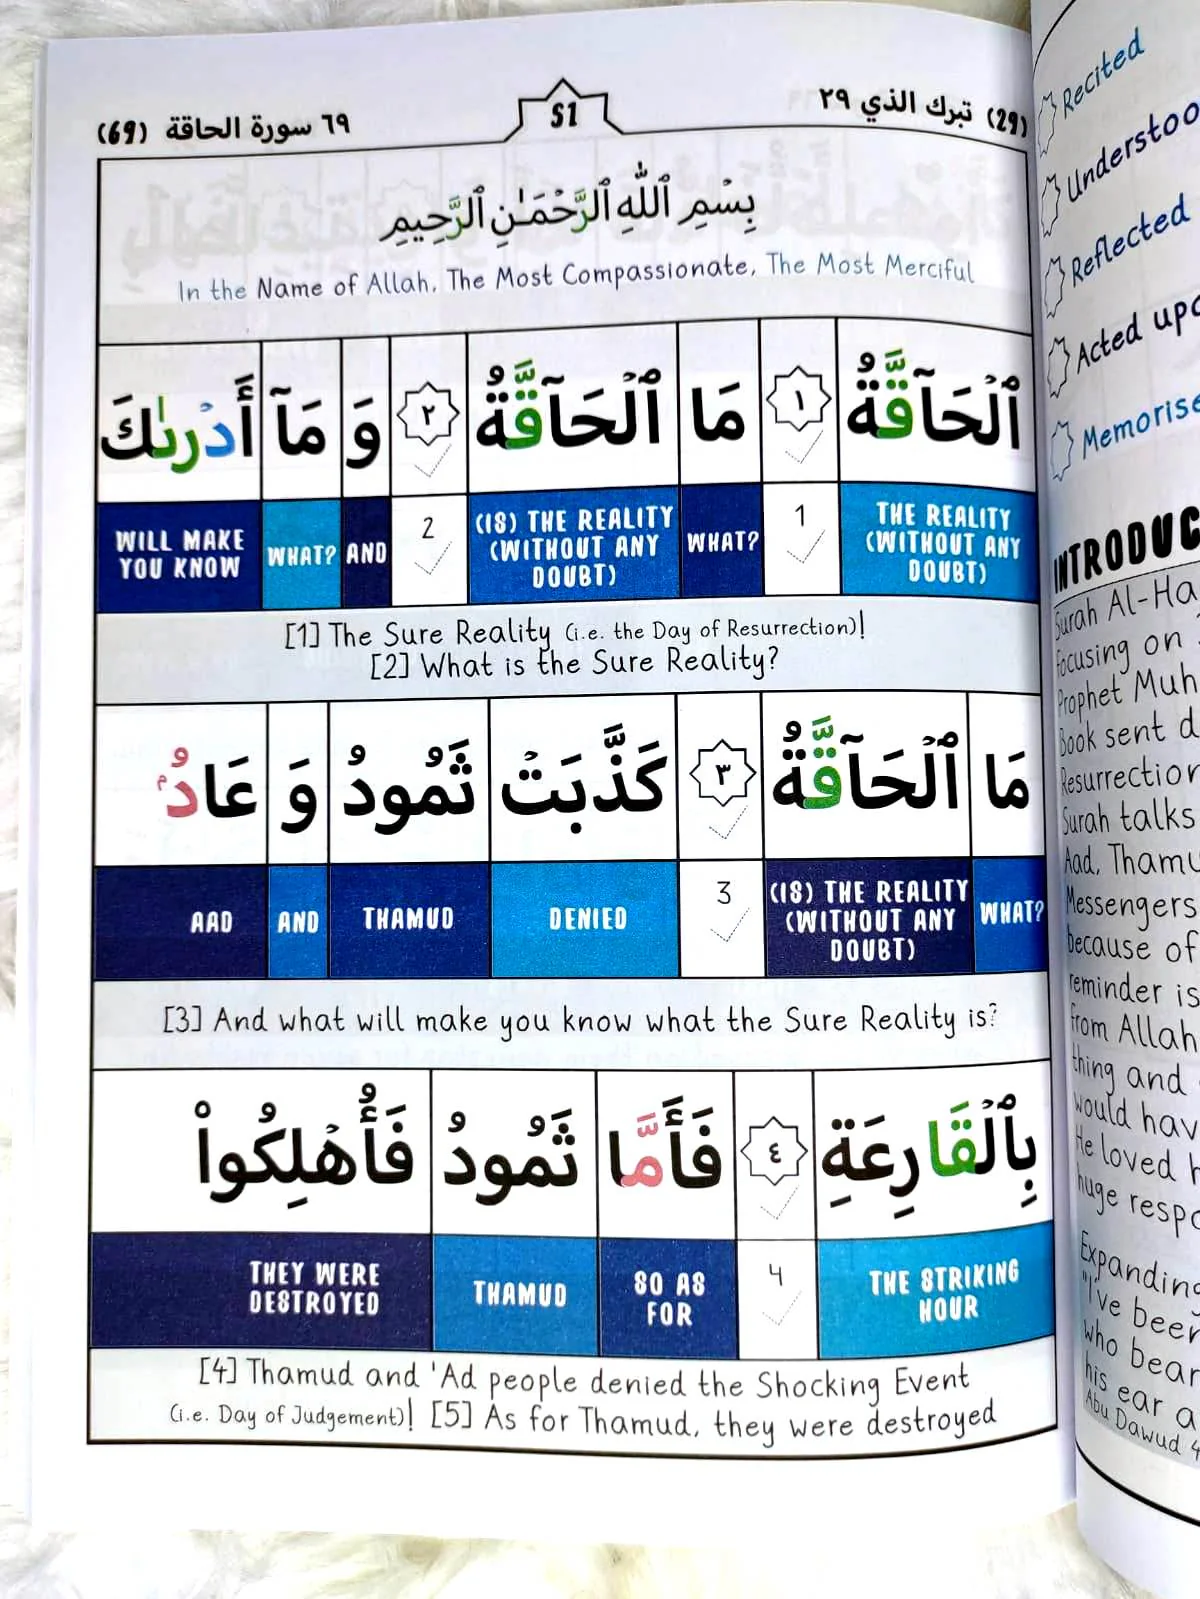 (29) تبرك الذي ٢٩
51
٦٩ سورة الحاقة (69)
بِسْمِ ٱللَّهِ ٱلرَّحْمَـٰنِ ٱلرَّحِيمِ
In the Name of Allah, The Most Compassionate, The Most Merciful
ٱلْحَآقَّةُ ١ مَا ٱلْحَآقَّةُ ٢ وَ مَآ أَدْرىٰكَ
THE REALITY (WITHOUT ANY DOUBT)
1
WHAT?
(18) THE REALITY (WITHOUT ANY DOUBT)
2
AND
WHAT?
WILL MAKE YOU KNOW
[1] The Sure Reality (i.e. the Day of Resurrection)!
[2] What is the Sure Reality?
مَا ٱلْحَآقَّةُ ٣ كَذَّبَتْ ثَمُودُ وَ عَادُۢ
WHAT?
(18) THE REALITY (WITHOUT ANY DOUBT)
3
DENIED
THAMUD
AND
AAD
[3] And what will make you know what the Sure Reality is?
بِٱلْقَارِعَةِ ٤ فَأَمَّا ثَمُودُ فَأُهْلِكُوا۟
THE STRIKING HOUR
4
SO AS FOR
THAMUD
THEY WERE DESTROYED
[4] Thamud and 'Ad people denied the Shocking Event
(i.e. Day of Judgement)! [5] As for Thamud, they were destroyed
Recited
Understoo
Reflected
Acted upo
Memorise
INTRODUC
Surah Al-Ha
Focusing on
Prophet Muh
Book sent d
Resurrection
Surah talks
Aad, Thamu
Messengers
because of
reminder is
from Allah
thing and
would hav
He loved h
huge respo
Expanding
"I've been
who bear
his ear a
Abu Dawud 4